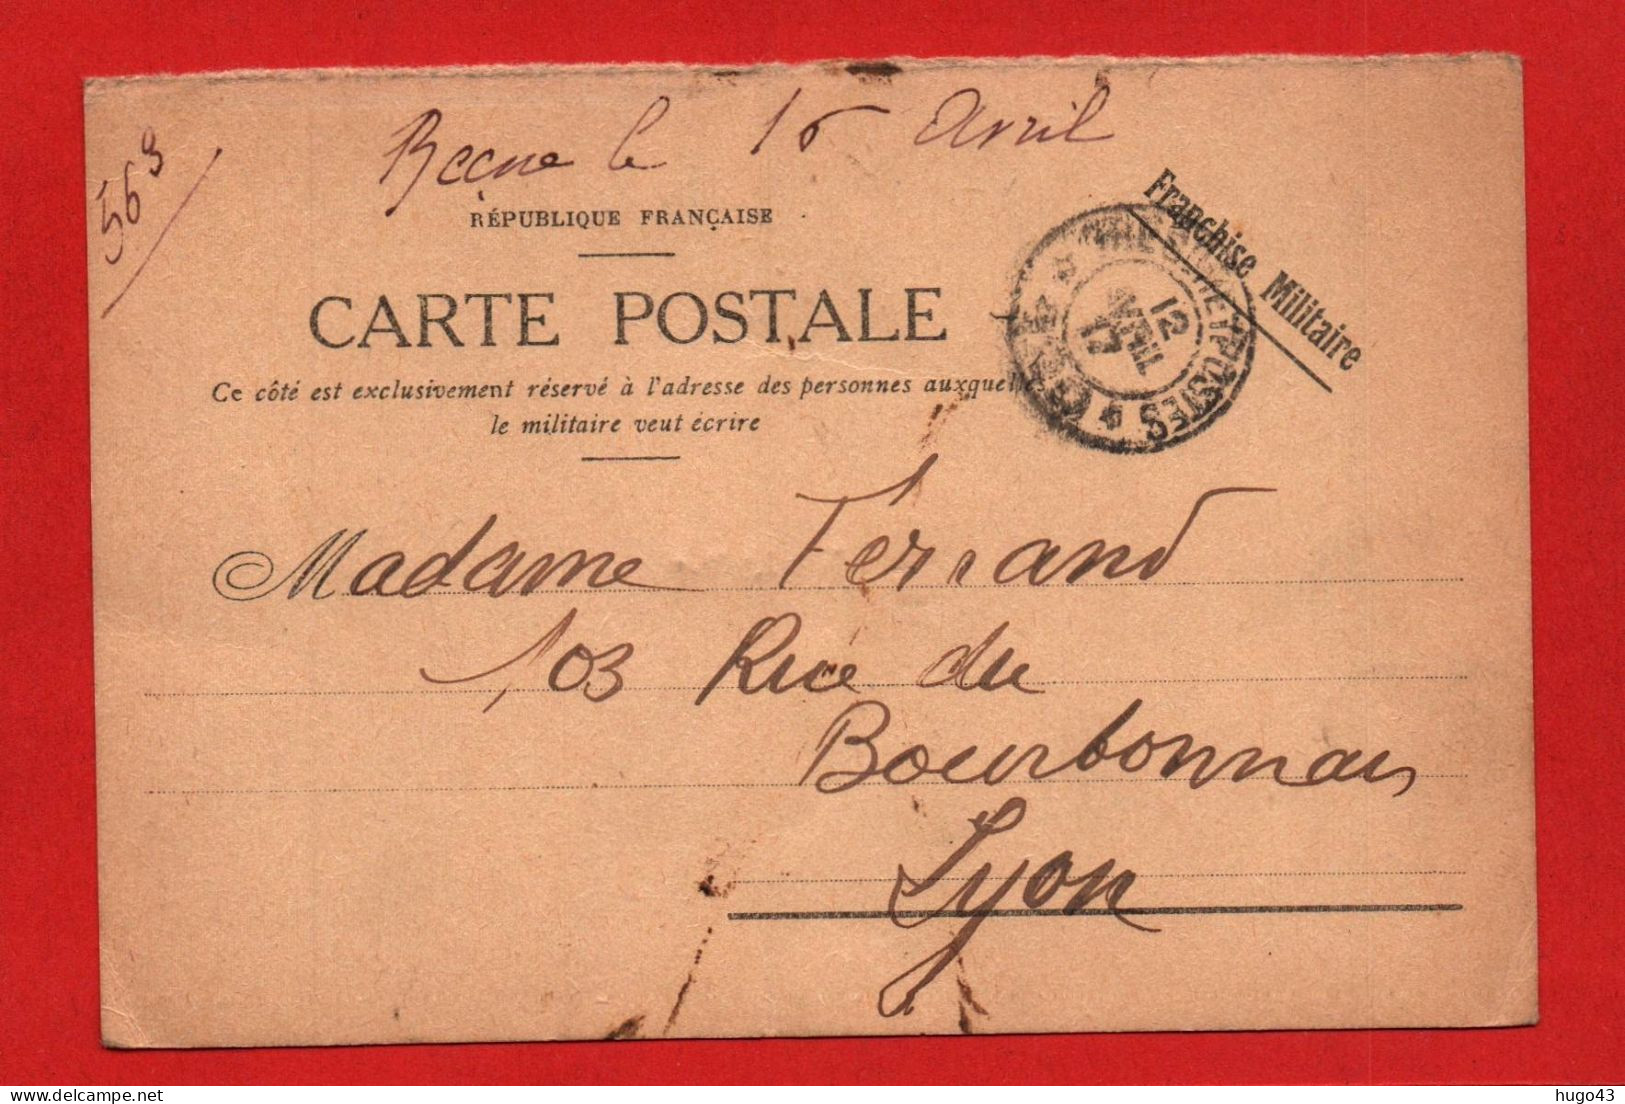 56 3
le 16 Avril
RÉPUBLIQUE FRANÇAISE
Franchise Militaire
CARTE POSTALE
TRESOR ET POSTES
12
AVRIL
17
Ce côté est exclusivement réservé à l'adresse des personnes auxquelles
le militaire veut écrire
Madame Ferrand
103 Rue du
Bourbonnais
Lyon
hugo43